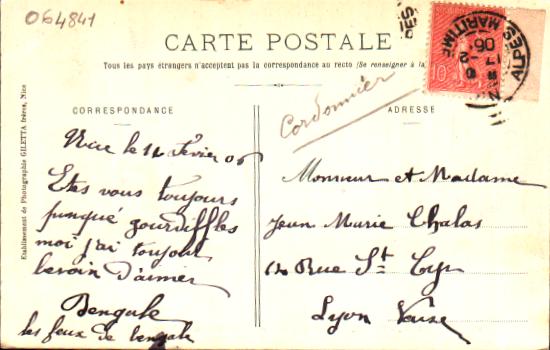 064841
CARTE POSTALE
Tous les pays étrangers n'acceptent pas la correspondance au recto (Se renseigner à la
CORRESPONDANCE
ADRESSE
Etablissement de Photographie GILETTA frères, Nice
Cordonnier
Nice le 12 Février 06
Etes vous toujours
moi j'ai toujours
besoin d'aimer
Bengale
les feux de bengale
Monsieur et Madame
Jean Marie Chalas
12 Rue St Cyr
Lyon Vaise
ALPES MARITIME
10